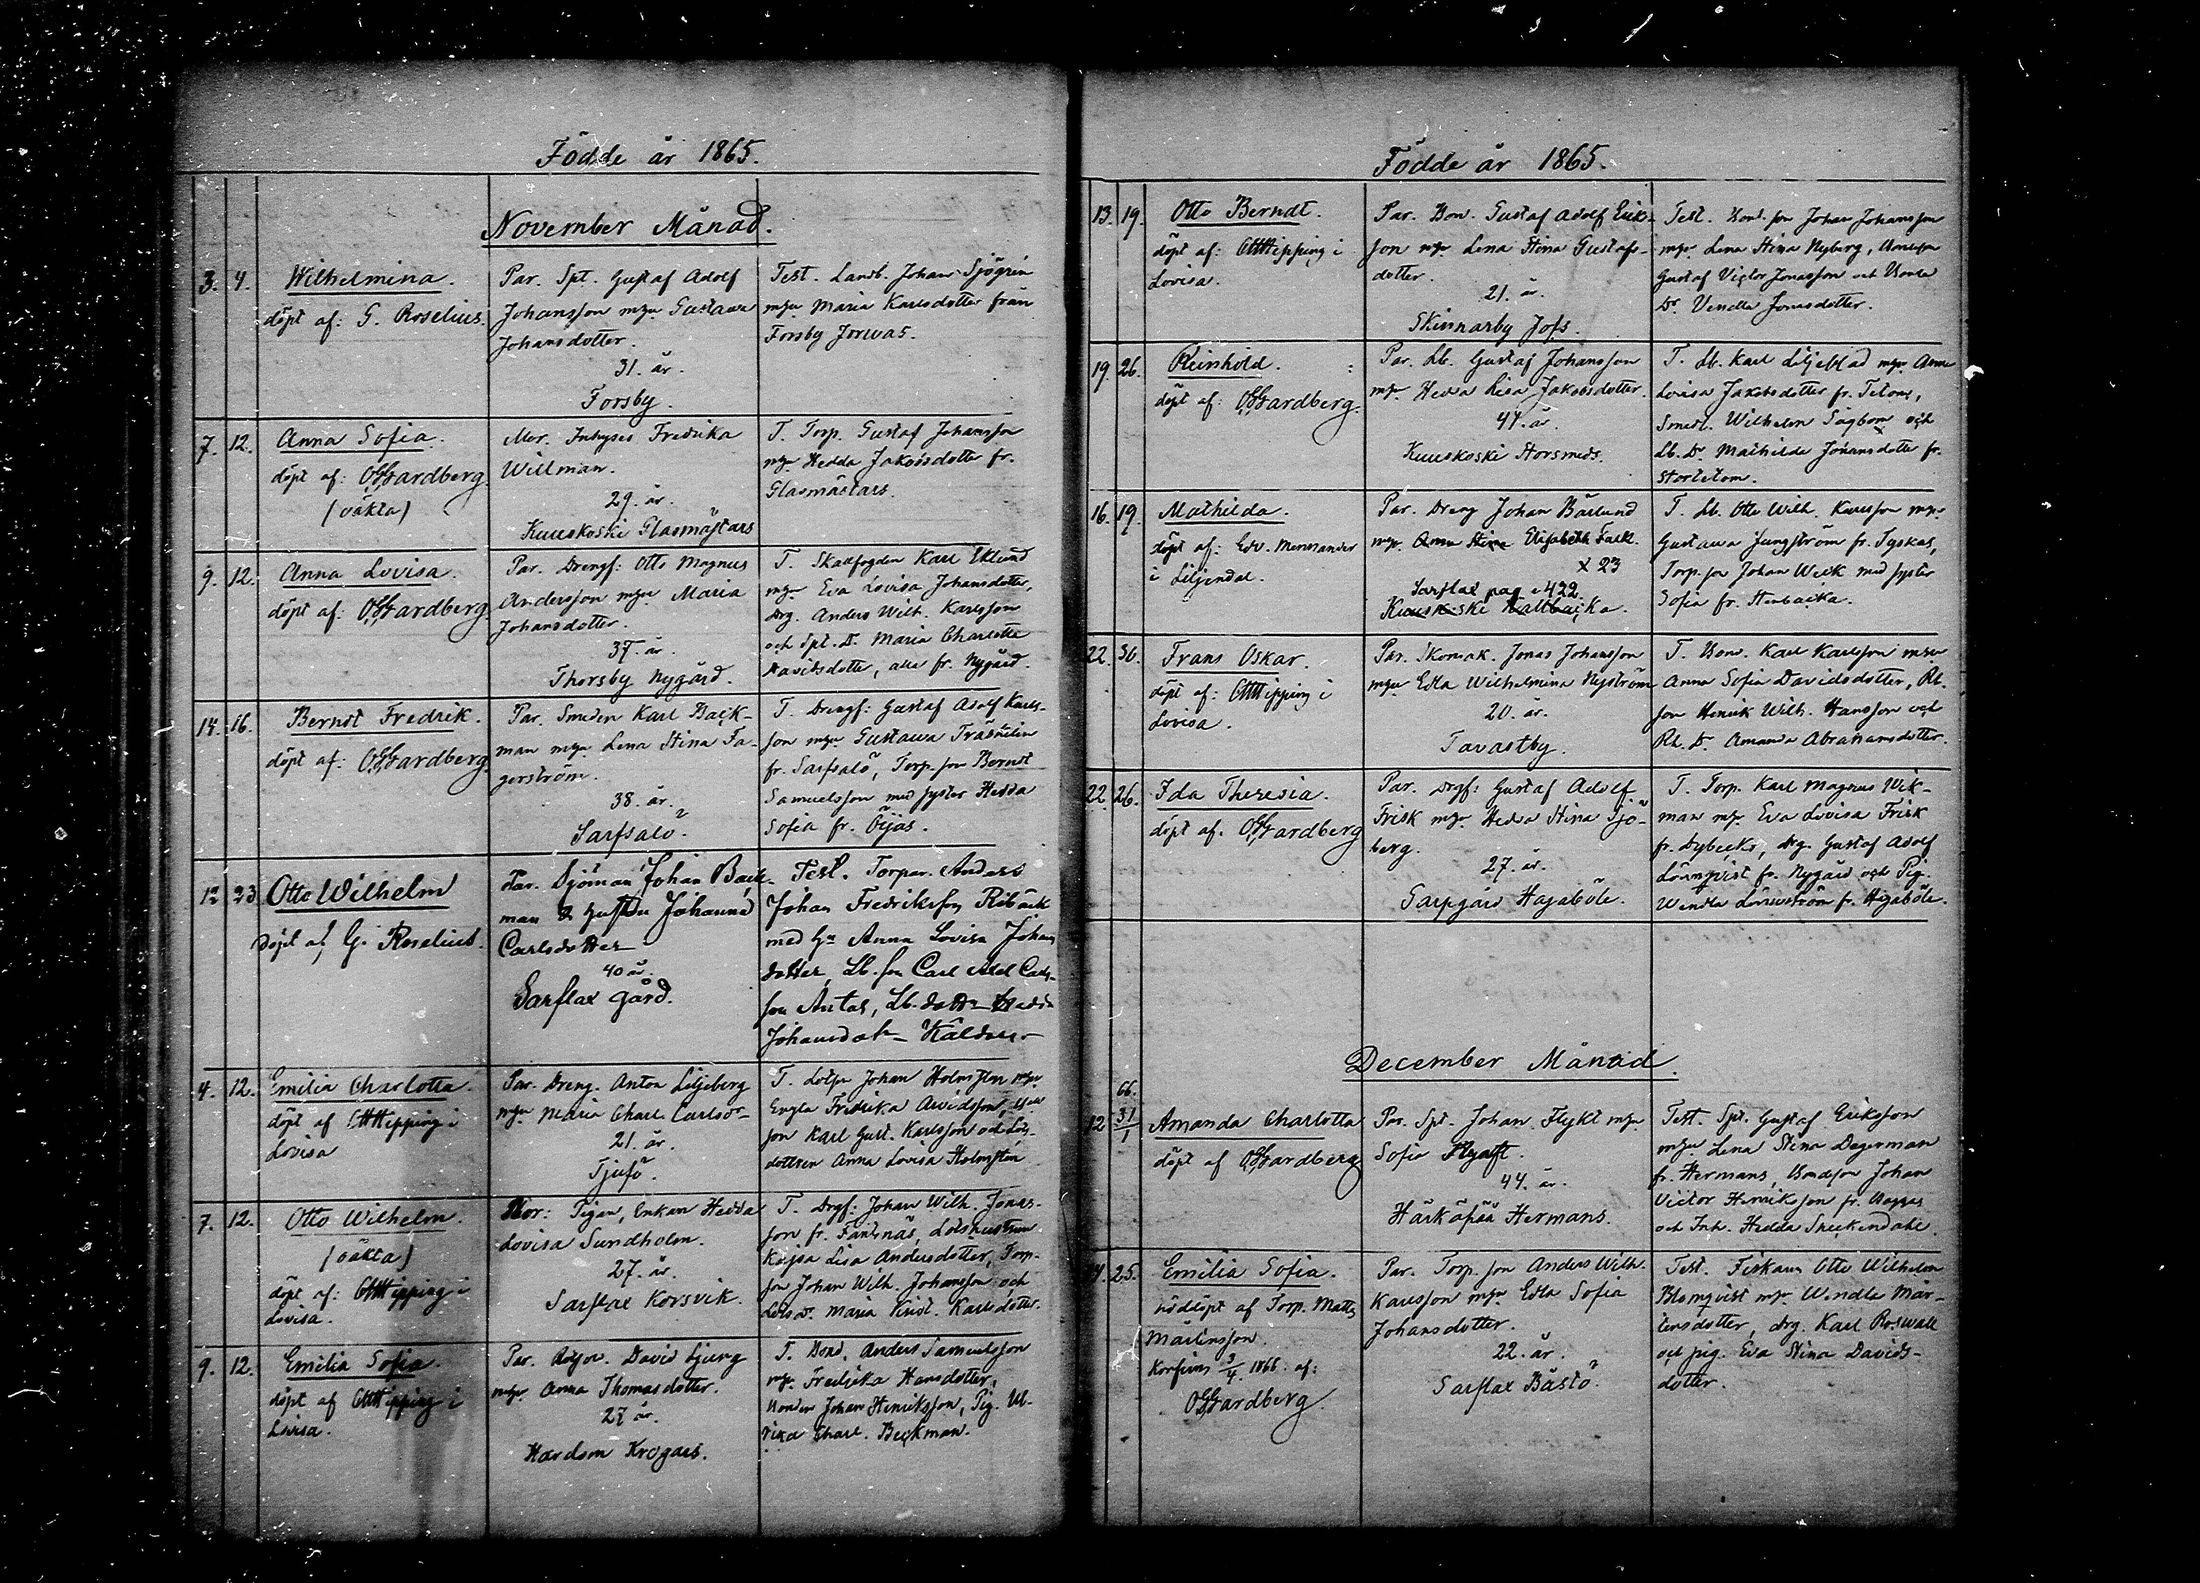 Födde år 1865.
November Månad.
3. 4. Wilhelmina.
döpt af: G. Roselius.
Par. Spt. Gustaf Adolf
Johansson mhu Gustava
Johansdotter.
31. år.
Forsby.
Test. Landb. Johan Sjögren
mhu Maria Karlsdotter från
Forsby Jorvas.
7. 12. Anna Sofia.
döpt af: Gardberg.
(oäkta)
Mor. Inhyses Fredrika
Willman.
29. år.
Kuuskoski Glasmästars
T. Torp. Gustaf Johansson
mhu Hedda Jakobsdotter fr.
Glasmästars.
9. 12. Anna Lovisa.
döpt af: Gardberg
Par. Drengf: Otto Magnus
Andersson mhu Maria
Johansdotter.
37. år.
Thorsby Nygård.
T. Skallfogden Karl Eklund
mhu Eva Lovisa Johansdotter,
drg. Anders Wilh. Karlsson
och Spt. D. Maria Charlotta
Davidsdotter, alla fr. Nygård.
14. 16. Berndt Fredrik.
döpt af: Gardberg
Par. Smeden Karl Back-
man mhu Lena Stina Fa-
gerström.
38. år.
Sarfsalö.
T. Drengf: Gustaf Adolf Karls-
son mhu Gustava
fr. Sarfsalö, Torp. son Berndt
Samuelsson med syster Hedda
Sofia fr. Öijas.
12 23 Otto Wilhelm
döpt af G. Roselius.
Par. Sjöman Johan Back-
man & hustru Johanna
Carlsdotter
40 år.
Sarflax gård.
Test. Torpar. Anders
Johan Fredriksson Ribäck
med Hu Anna Lovisa Johans
dotter, Lb. son Carl Carls-
son Antas, Lb. dotter Hedda
Johansdotr
4. 12. Emilia Charlotta.
döpt af Hipping i
Lovisa
Par. Dreng. Anton Liljeberg
mhu Maria Charl. Carlsdr
21. år.
Tjufö.
T. Lotsen Johan Holmsten mhu
Engla Fredrika Arvidsson,
son Karl Gust. Karlsson och Lots-
dottren Anna Lovisa Holmsten
7. 12. Otto Wilhelm.
(oäkta)
döpt af: Hipping i
Lovisa.
Mor: Pigan, Enkan Hedda
Lovisa Sundholm.
27. år.
Sarflax Korsvik.
T. Drgf: Johan Wilh. Jonas-
son fr. Fantsnäs, Lotshustrun
Kajsa Lisa Andersdotter, Torp-
son Johan Wilh. Johansson och
Lots D. Maria Krist. Karlsdotter.
9. 12. Emilia Sofia.
döpt af Hipping i
Lovisa.
Par. David Ljung
mhu Anna Thomasdotter.
27 år.
Hardom Krogars.
T. Bond. Anders Samuelsson
mhu Fredrika Hansdotter,
Bonden Johan Henriksson, Pig. Ul-
rika Charl. Beckman.
Födde år 1865.
13. 19. Otto Berndt.
döpt af: Hipping i
Lovisa.
Par. Bon. Gustaf Adolf Erik-
son mhu Lena Stina Gustafs-
dotter.
21. år.
Skinnarby Jofs.
Test. Bond. son Johan Johansson
mhu Lena Stina Nyberg, Bondeson
Gustaf Victor Jonasson och Bonde
Dr. Vendla Jonasdotter.
19. 26. Reinhold.
döpt af: Gardberg.
Par. Lb. Gustaf Johansson
mhu Hedda Lisa Jakobsdotter.
41. år.
Kuuskoski Storsmeds.
T. Lb. Karl Liljeblad mhu Anna
Lovisa Jakobsdotter fr. Tetom,
Smedl. Wilhelm Sågbom och
Lb. Dr. Mathilda Johansdotter fr.
Stortetom.
16. 19. Mathilda.
döpt af: Edv. Menssander
i Liljendal.
Par. Dreng Johan Bärlund
mhu Anna Stina Elisabeth Falk.
x 23
Sarflax pag. 422.
Kuuskoski Kallbacka.
T. Lb. Otto Wilh. Karlsson mhu
Gustava Ljungström fr. Tyskas,
Torp. son Johan Wilk med syster
Sofia fr. Stenbacka.
22. 30. Frans Oskar.
döpt af: Hipping i
Lovisa.
Par. Skomak. Jonas Johansson
mhu Edla Wilhelmina Nyström
20. år.
Tavastby.
T. Bond. Karl Karlsson mhu
Anna Sofia Davidsdotter, Rt.
son Henrik Wilh. Hansson och
Rt. D. Amanda Abrahamsdotter.
22. 26. Ida Theresia.
döpt af. Gardberg
Par. Drgf: Gustaf Adolf
Frisk mhu Hedda Stina Sjö-
berg.
27. år.
Sarpgård Hagaböle.
T. Torp. Karl Magnus Wik-
man mhu Eva Lovisa Frisk
fr. Dybecks, drg. Gustaf Adolf
Lönnqvist fr. Nygård och Pig.
Wendla Lönnström fr. Hagaböle.
December Månad.
12 66. 31/1 Amanda Charlotta
döpt af Gardberg
Par. Spt. Johan Flykt mhu
Sofia
44. år.
Härkäpää Hermans.
Test. Spt. Gustaf Eriksson
mhu Lena Stina Dagerman
fr. Hermans, Bondson Johan
Victor Henriksson fr.
och Inh. Hedda
14. 25. Emilia Sofia.
nöddöpt af Torp. Matts
Mårtensson.
Konfirm. 3/4 1866. af:
Gardberg.
Par. Torp. son Anders Wilh.
Karlsson mhu Edla Sofia
Johansdotter.
22. år.
Sarflax Båstö.
Test. Fiskaren Otto Wilhelm
Blomqvist mhu Wendla Mår-
tensdotter, drg. Karl Roswall
och pig. Eva Stina Davids-
dotter.